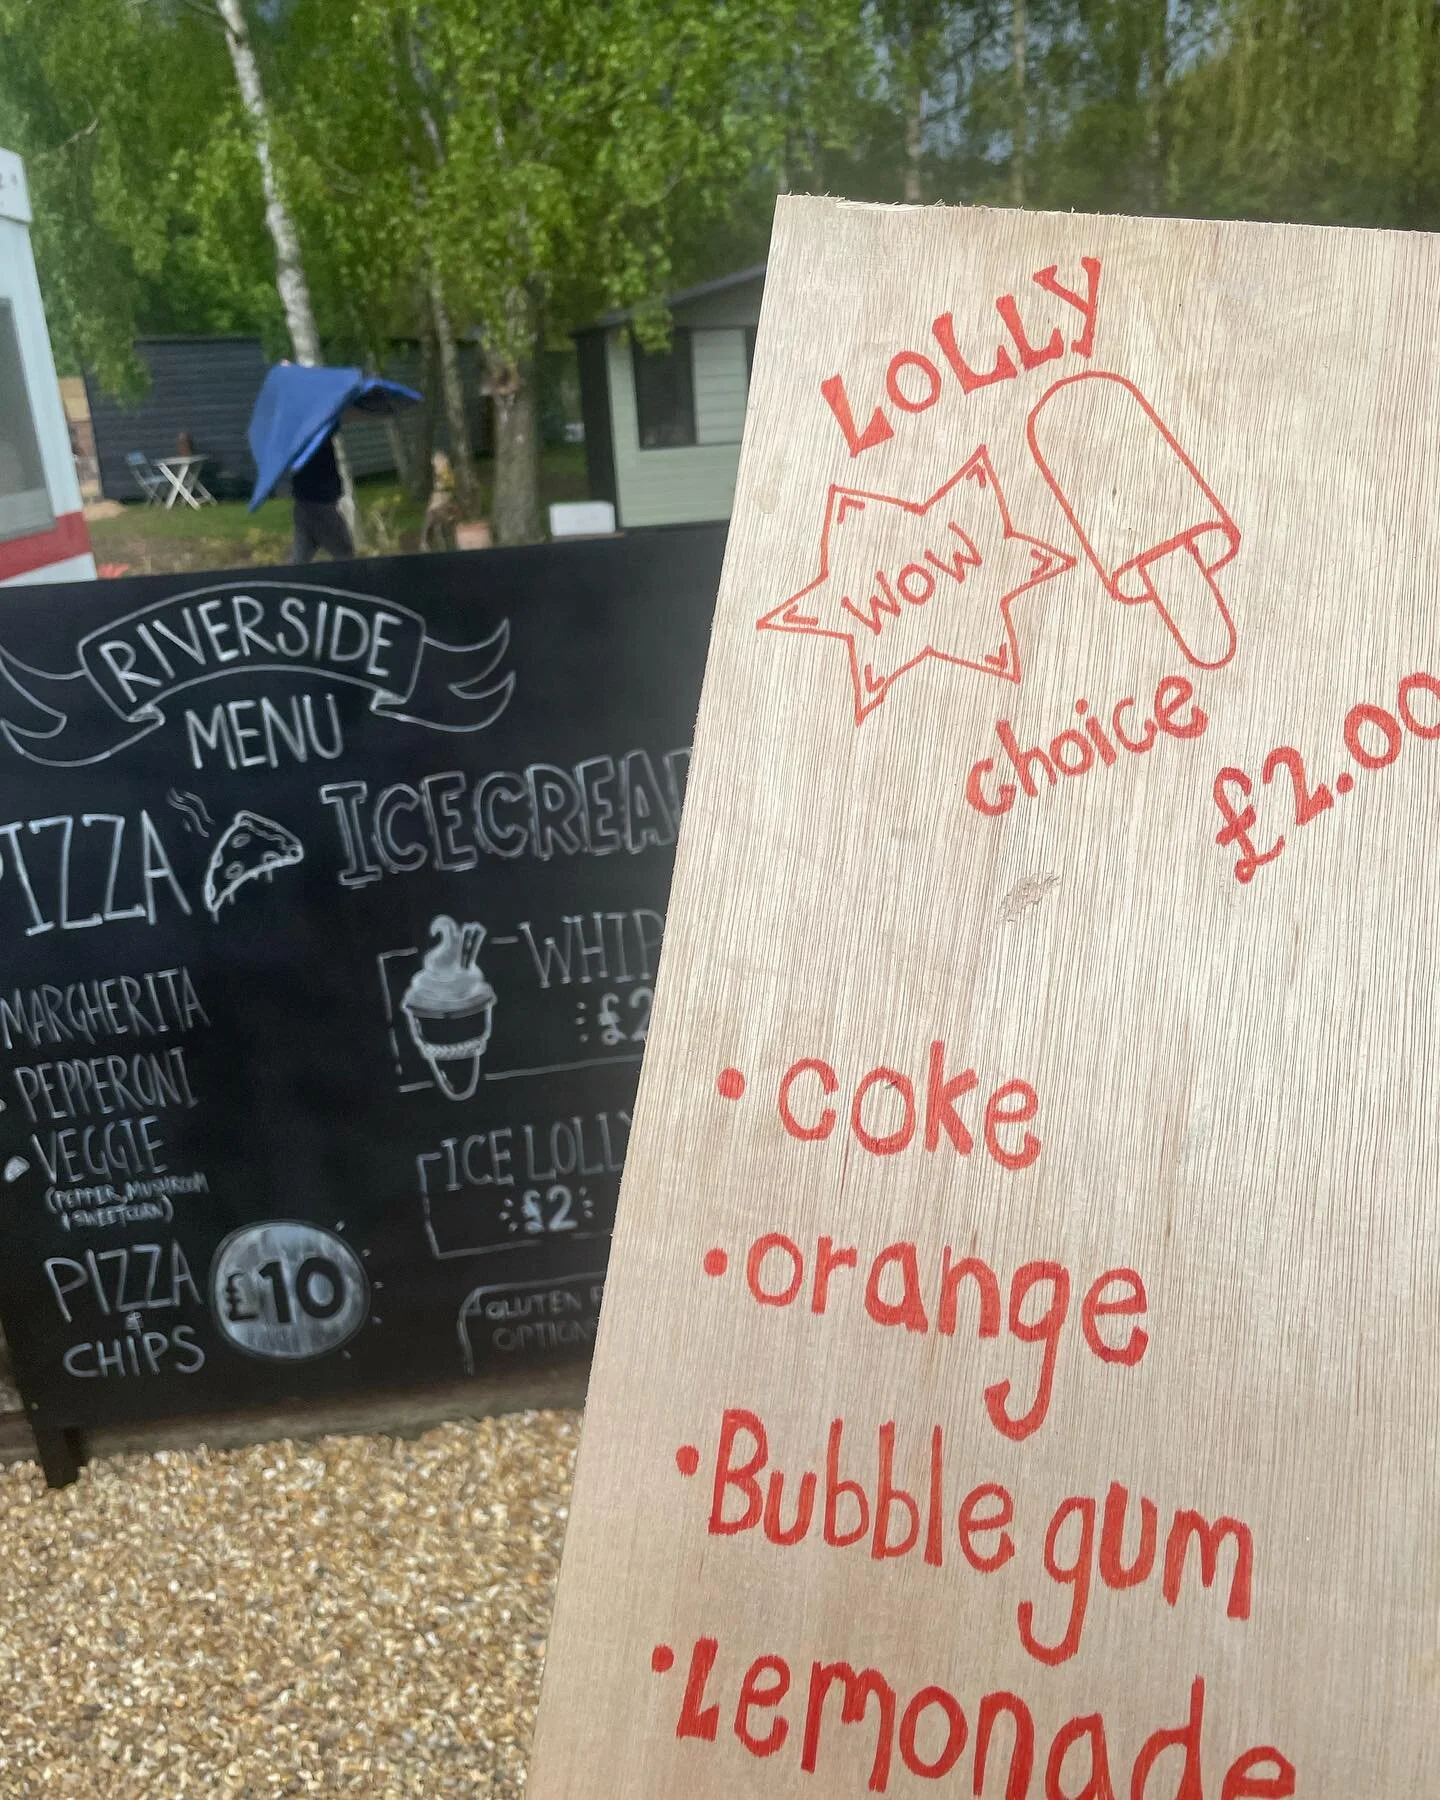 RIVERSIDE
MENU
PIZZA
MARGHERITA
PEPPERONI
VEGGIE
(PEPPER, MUSHROOM
& SWEETCORN)
PIZZA
&
CHIPS
£10
ICECREA
WHIP
£2
ICE LOLLY
£2
GLUTEN F
OPTION
LOLLY
WOW
choice
£2.00
• coke
• orange
• Bubble gum
• Lemonade